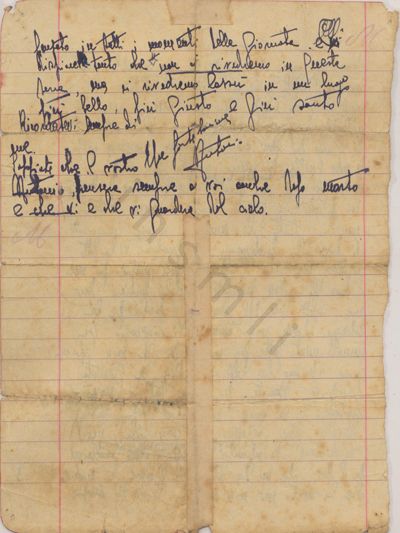 in tutti i momenti della giornata
tanto che non ci rivedremo in questa
terra, ma ci rivedremo lassù in un luogo
più bello, più giusto e più santo
Ricordatevi sempre di
me.
Sappiate che il vostro
penserà sempre a voi anche dopo morto
e che vi e che vi guarderà dal cielo.
insmli